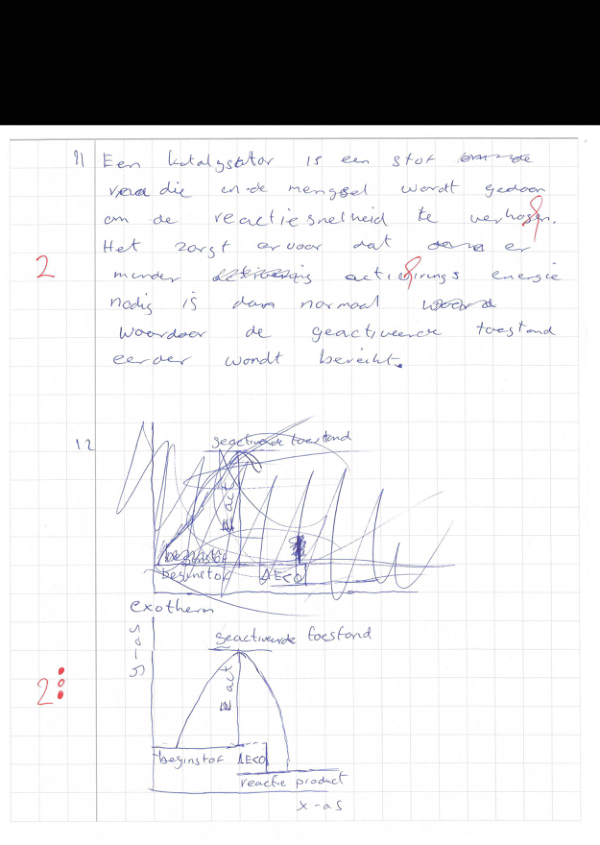 11 Een katalysator is een stof
die in de mengsel wordt gedaan
om de reactiesnelheid te verhogen.
Het zorgt ervoor dat er
2
minder activerings energie
nodig is dan normaal
waardoor de geactiveerde toestand
eerder wordt bereikt.
12
geactiveerde toestand
E act
beginstof ΔE<0
exotherm
y-as
geactiveerde toestand
E act
2
beginstof ΔE<0
reactie product
x-as